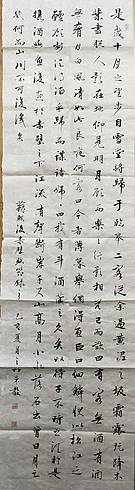 是歲十月之望步自雪堂將歸于臨皋二客從余過黃泥之坂霜露既降木
葉盡脫人影在地仰見明月顧而樂之行歌相答已而嘆曰有客無酒有酒
無肴月白風清如此良夜何客曰今者薄暮舉網得魚巨口細鱗狀似松江之
鱸顧安所得酒乎歸而謀諸婦婦曰我有斗酒藏之久矣以待子不時之需於是
攜酒與魚復遊於赤壁之下江流有聲斷岸千尺山高月小水落石出曾日月之
幾何而江山不可復識矣
蘇軾後赤壁賦節錄
己亥夏月